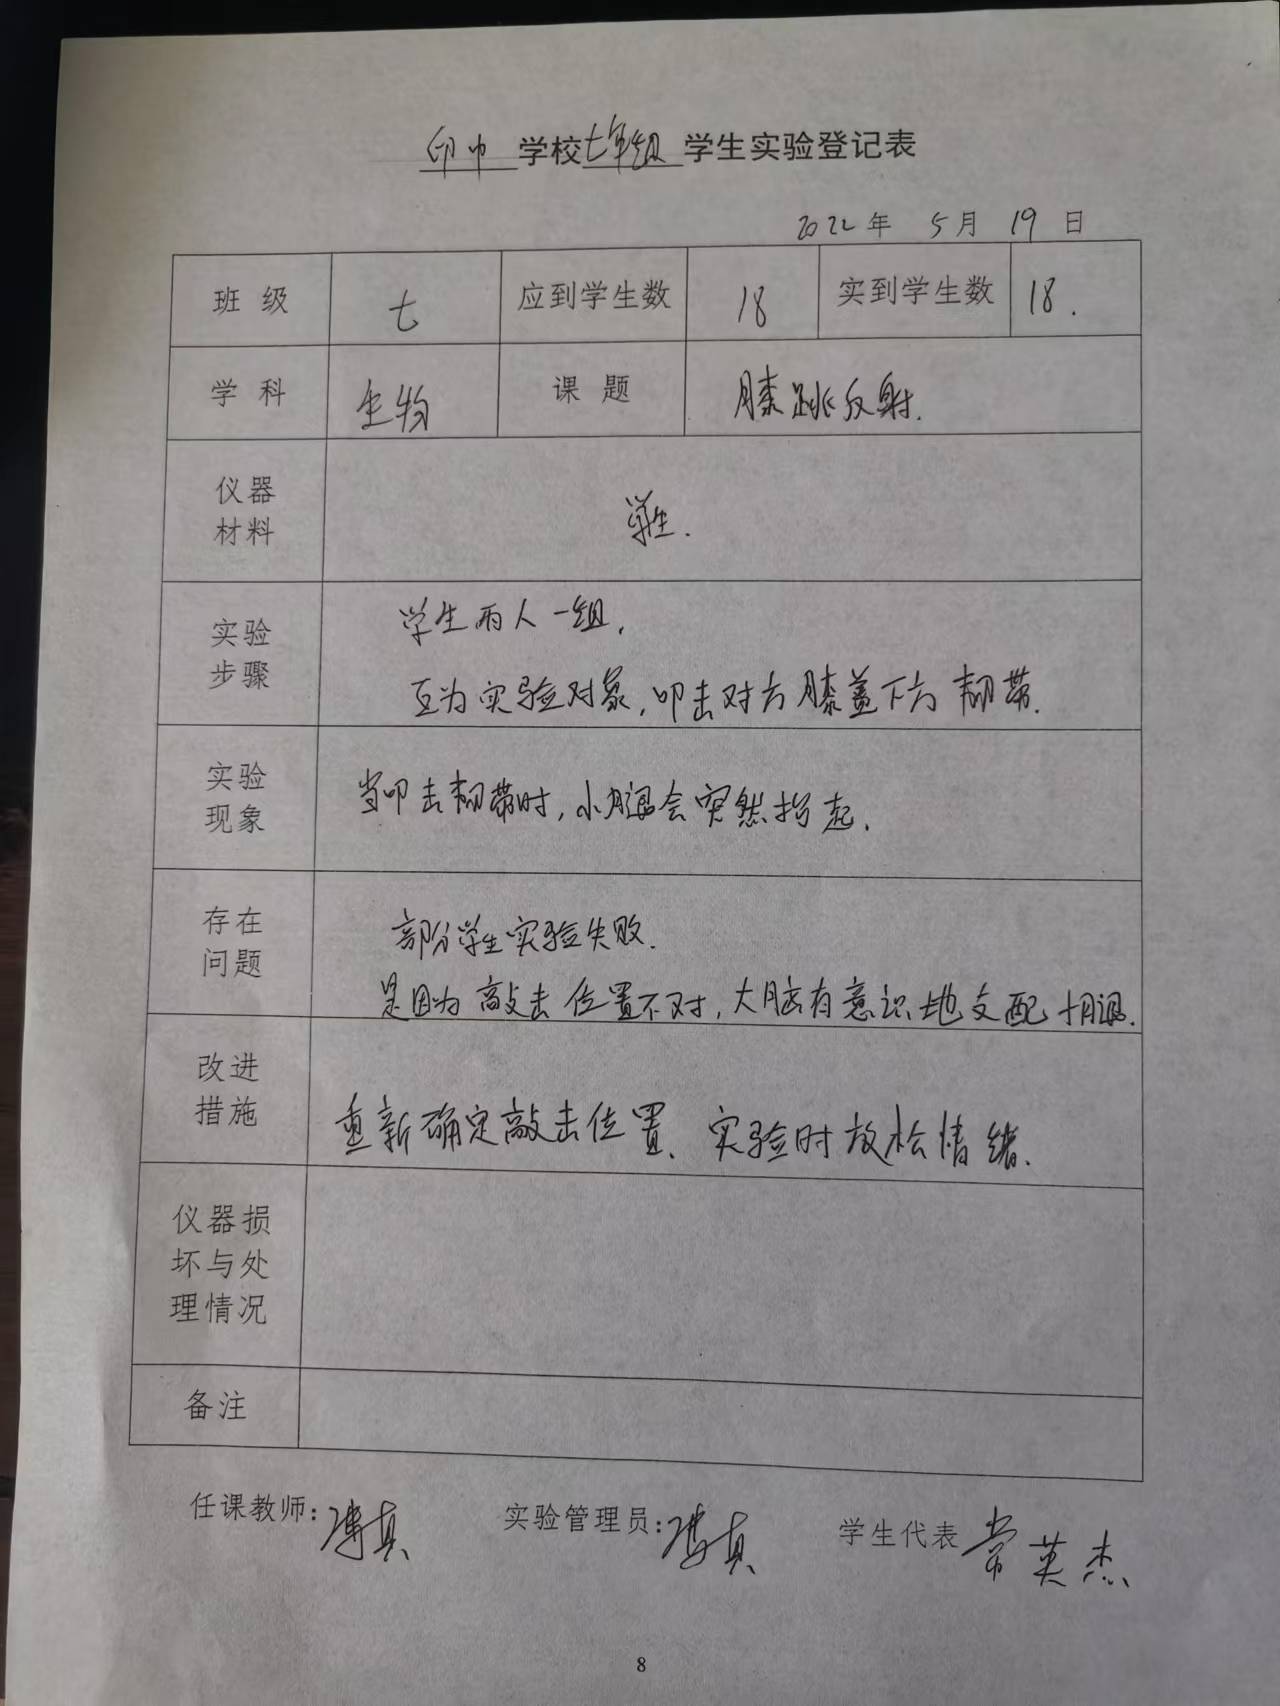 印中 学校 七年组 学生实验登记表
2022年 5月 19日
班 级 七 应到学生数 18 实到学生数 18.
学 科 生物 课 题 膝跳反射.
仪器
材料
学生.
实验
步骤
学生两人一组,
互为实验对象,叩击对方膝盖下方韧带.
实验
现象
当叩击韧带时,小腿会突然抬起.
存在
问题
部分学生实验失败.
是因为敲击位置不对,大脑有意识地支配小腿.
改进
措施
重新确定敲击位置、实验时放松情绪.
仪器损
坏与处
理情况
备注
任课教师: 实验管理员: 学生代表 常英杰
8